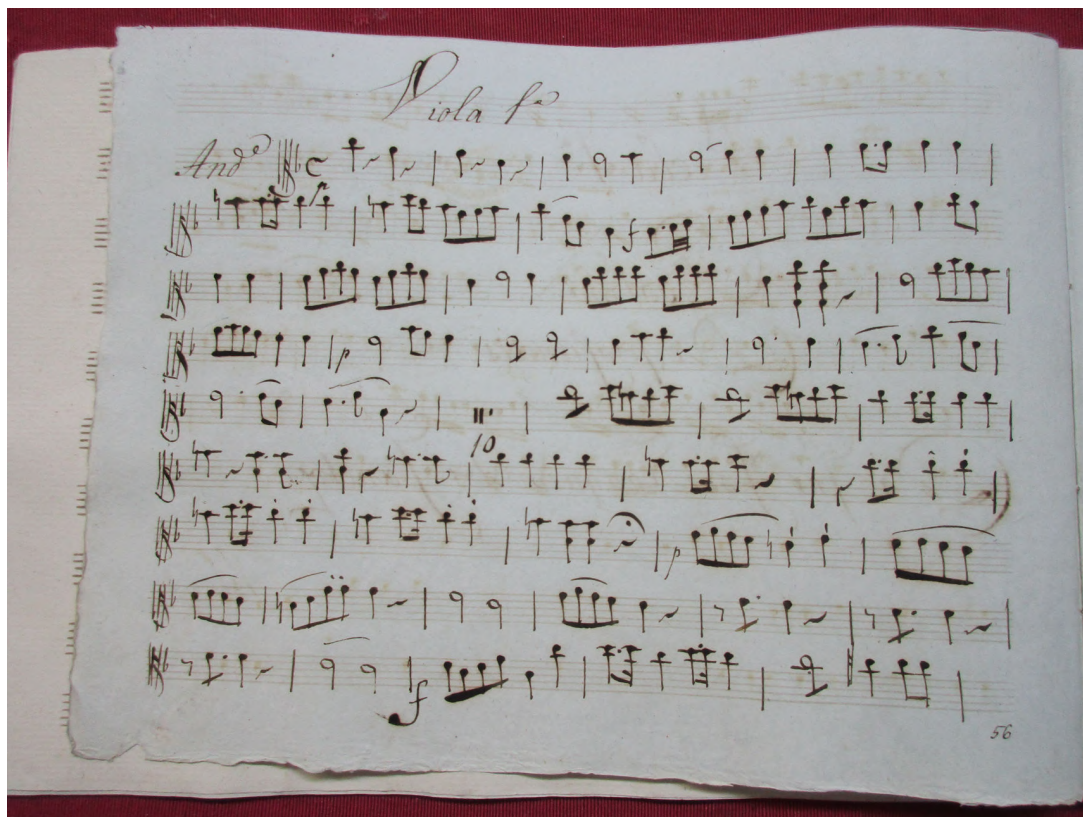 Viola 1ª
And.e
p
f
p
10
p
f
56